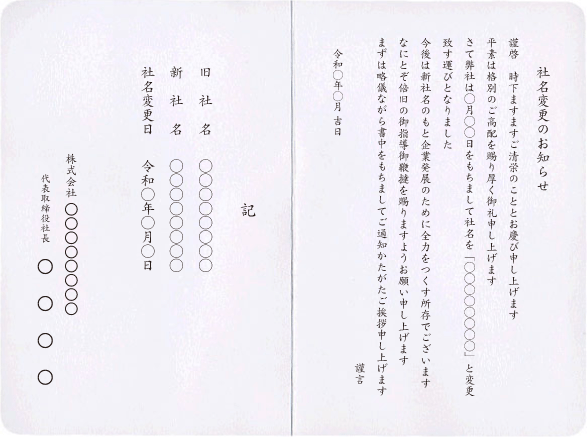 社名変更のお知らせ
謹啓　時下ますますご清栄のこととお慶び申し上げます
平素は格別のご高配を賜り厚く御礼申し上げます
さて弊社は〇月〇〇日をもちまして社名を「〇〇〇〇〇〇〇〇」と変更
致す運びとなりました
今後は新社名のもと企業発展のために全力をつくす所存でございます
なにとぞ倍旧の御指導御鞭撻を賜りますようお願い申し上げます
まずは略儀ながら書中をもちましてご通知かたがたご挨拶申し上げます
謹言
令和〇年〇月 吉日
記
旧社名　〇〇〇〇〇〇〇〇
新社名　〇〇〇〇〇〇〇〇
社名変更日　令和〇年〇月〇日
株式会社　〇〇〇〇〇〇〇〇
代表取締役社長　〇〇〇〇